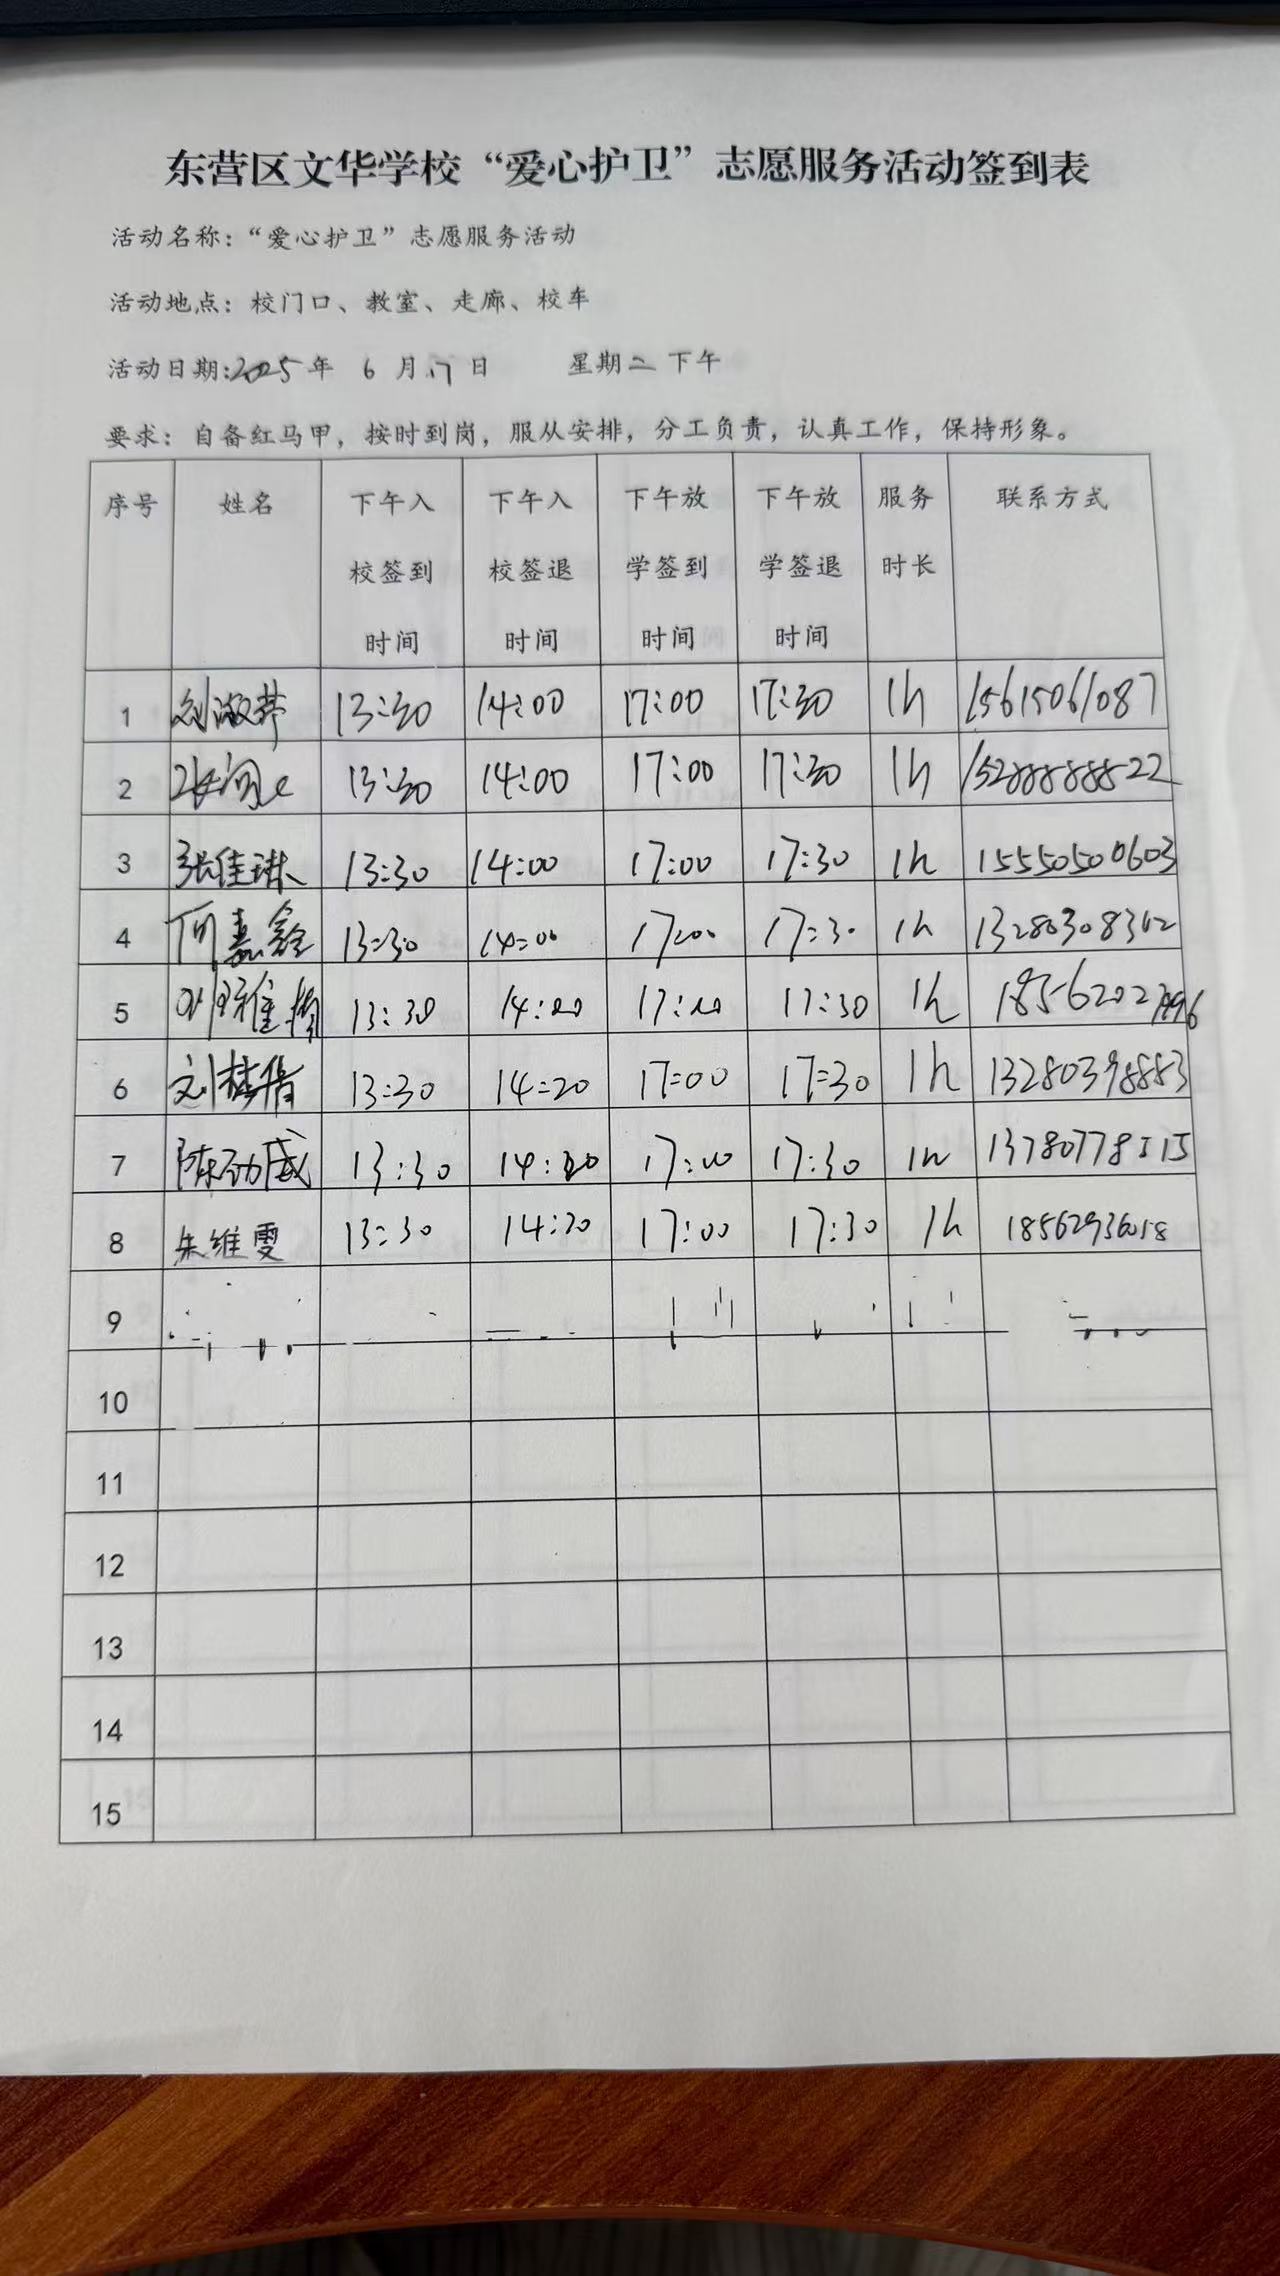 东营区文华学校“爱心护卫”志愿服务活动签到表
活动名称：“爱心护卫”志愿服务活动
活动地点：校门口、教室、走廊、校车
活动日期:2025年 6月17日 星期二下午
要求：自备红马甲，按时到岗，服从安排，分工负责，认真工作，保持形象。
序号 姓名 下午入校签到时间 下午入校签退时间 下午放学签到时间 下午放学签退时间 服务时长 联系方式
1 13:30 14:00 17:00 17:30 1h 15615061087
2 13:30 14:00 17:00 17:30 1h 15288888822
3 张佳琳 13:30 14:00 17:00 17:30 1h 15550500603
4 何嘉鑫 13:30 14:00 17:00 17:30 1h 13280308302
5 13:30 14:20 17:00 17:30 1h
6 刘桂倩 13:30 14:20 17:00 17:30 1h 13280398883
7 陈劲威 13:30 14:20 17:00 17:30 1h 13780778515
8 朱维雯 13:30 14:20 17:00 17:30 1h 18562936018
9
10
11
12
13
14
15